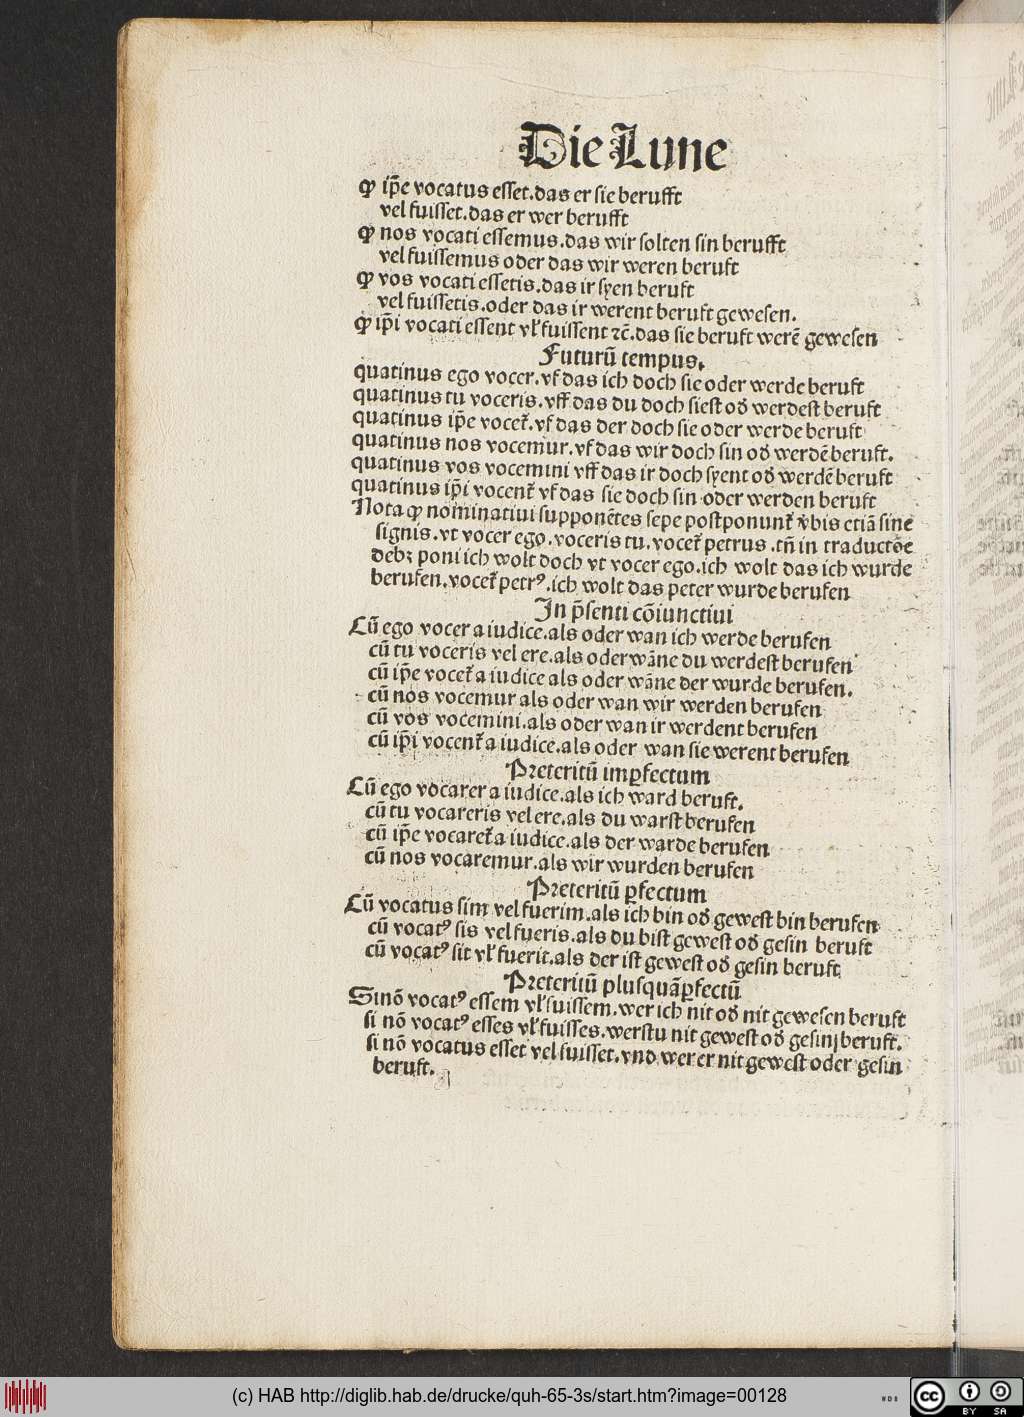 Die Lune
ꝙ ip̄e vocatus esset.das er sie berufft
vel fuisset.das er wer berufft
ꝙ nos vocati essemus.das wir solten sin berufft
vel fuissemus oder das wir weren beruft
ꝙ vos vocati essetis.das ir syen beruft
vel fuissetis.oder das ir werent beruft gewesen.
ꝙ ip̄i vocati essent vl̓ fuissent ⁊c̄.das sie beruft werē gewesen
Futurū tempus.
quatinus ego vocer.vf das ich doch sie oder werde beruft
quatinus tu voceris.vff das du doch siest od̓ werdest beruft
quatinus ip̄e vocet̓.vf das der doch sie oder werde beruft
quatinus nos vocemur.vf das wir doch sin od̓ werdē beruft.
quatinus vos vocemini vff das ir doch syent od̓ werdē beruft
quatinus ip̄i vocent̓ vf das sie doch sin oder werden beruft
Nota ꝙ nominatiui supponētes sepe postponunt̓ v̓bis etiā sine
signis.vt vocer ego.voceris tu.vocet̓ petrus .tn̄ in traductōe
debꝫ poni ich wolt doch vt vocer ego.ich wolt das ich wurde
berufen.vocet̓ petrꝰ.ich wolt das peter wurde berufen
In p̄senti cōiunctiui
Cū ego vocer a iudice.als oder wan ich werde berufen
cū tu voceris vel ere.als oder wāne du werdest berufen
cū ip̄e vocet̓ a iudice als oder wāne der wurde berufen.
cū nos vocemur als oder wan wir werden berufen
cū vos vocemini.als oder wan ir werdent berufen
cū ip̄i vocent̓ a iudice.als oder wan sie werent berufen
Preteritū imꝑfectum
Cū ego vocarer a iudice.als ich ward beruft.
cū tu vocareris vel ere.als du warst berufen
cū ip̄e vocaret̓ a iudice.als der warde berufen
cū nos vocaremur.als wir wurden berufen
Preteritū ꝑfectum
Cū vocatus sim vel fuerim.als ich bin od̓ gewest bin berufen
cū vocatꝰ sis vel fueris.als du bist gewest od̓ gesin beruft
cū vocatꝰ sit vl̓ fuerit.als der ist gewest od̓ gesin beruft
Preteritū plusquāꝑfectū
Si nō vocatꝰ essem vl̓ fuissem.wer ich nit od̓ nit gewesen beruft
si nō vocatꝰ esses vl̓ fuisses.werstu nit gewest od̓ gesin beruft.
si nō vocatus esset vel fuisset.vnd wer er nit gewest oder gesin
beruft.
(c) HAB http://diglib.hab.de/drucke/quh-65-3s/start.htm?image=00128
cc BY SA